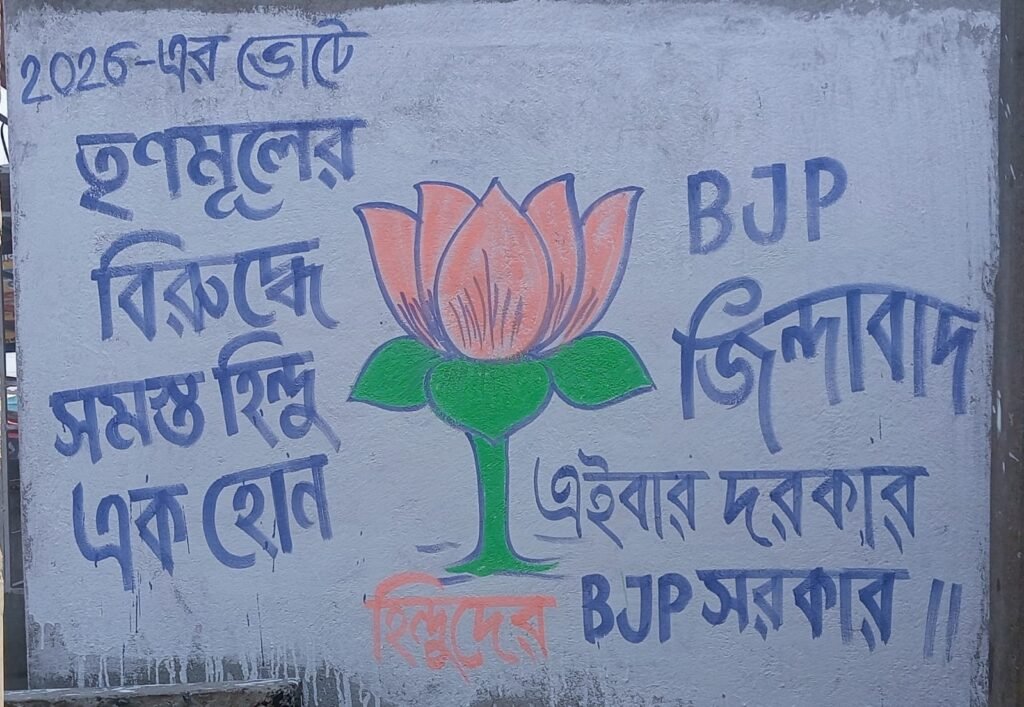 2026-এর ভোটে
তৃণমূলের
বিরুদ্ধে
সমস্ত হিন্দু
এক হোন
BJP
জিন্দাবাদ
এইবার দরকার
হিন্দুদের BJP সরকার ॥